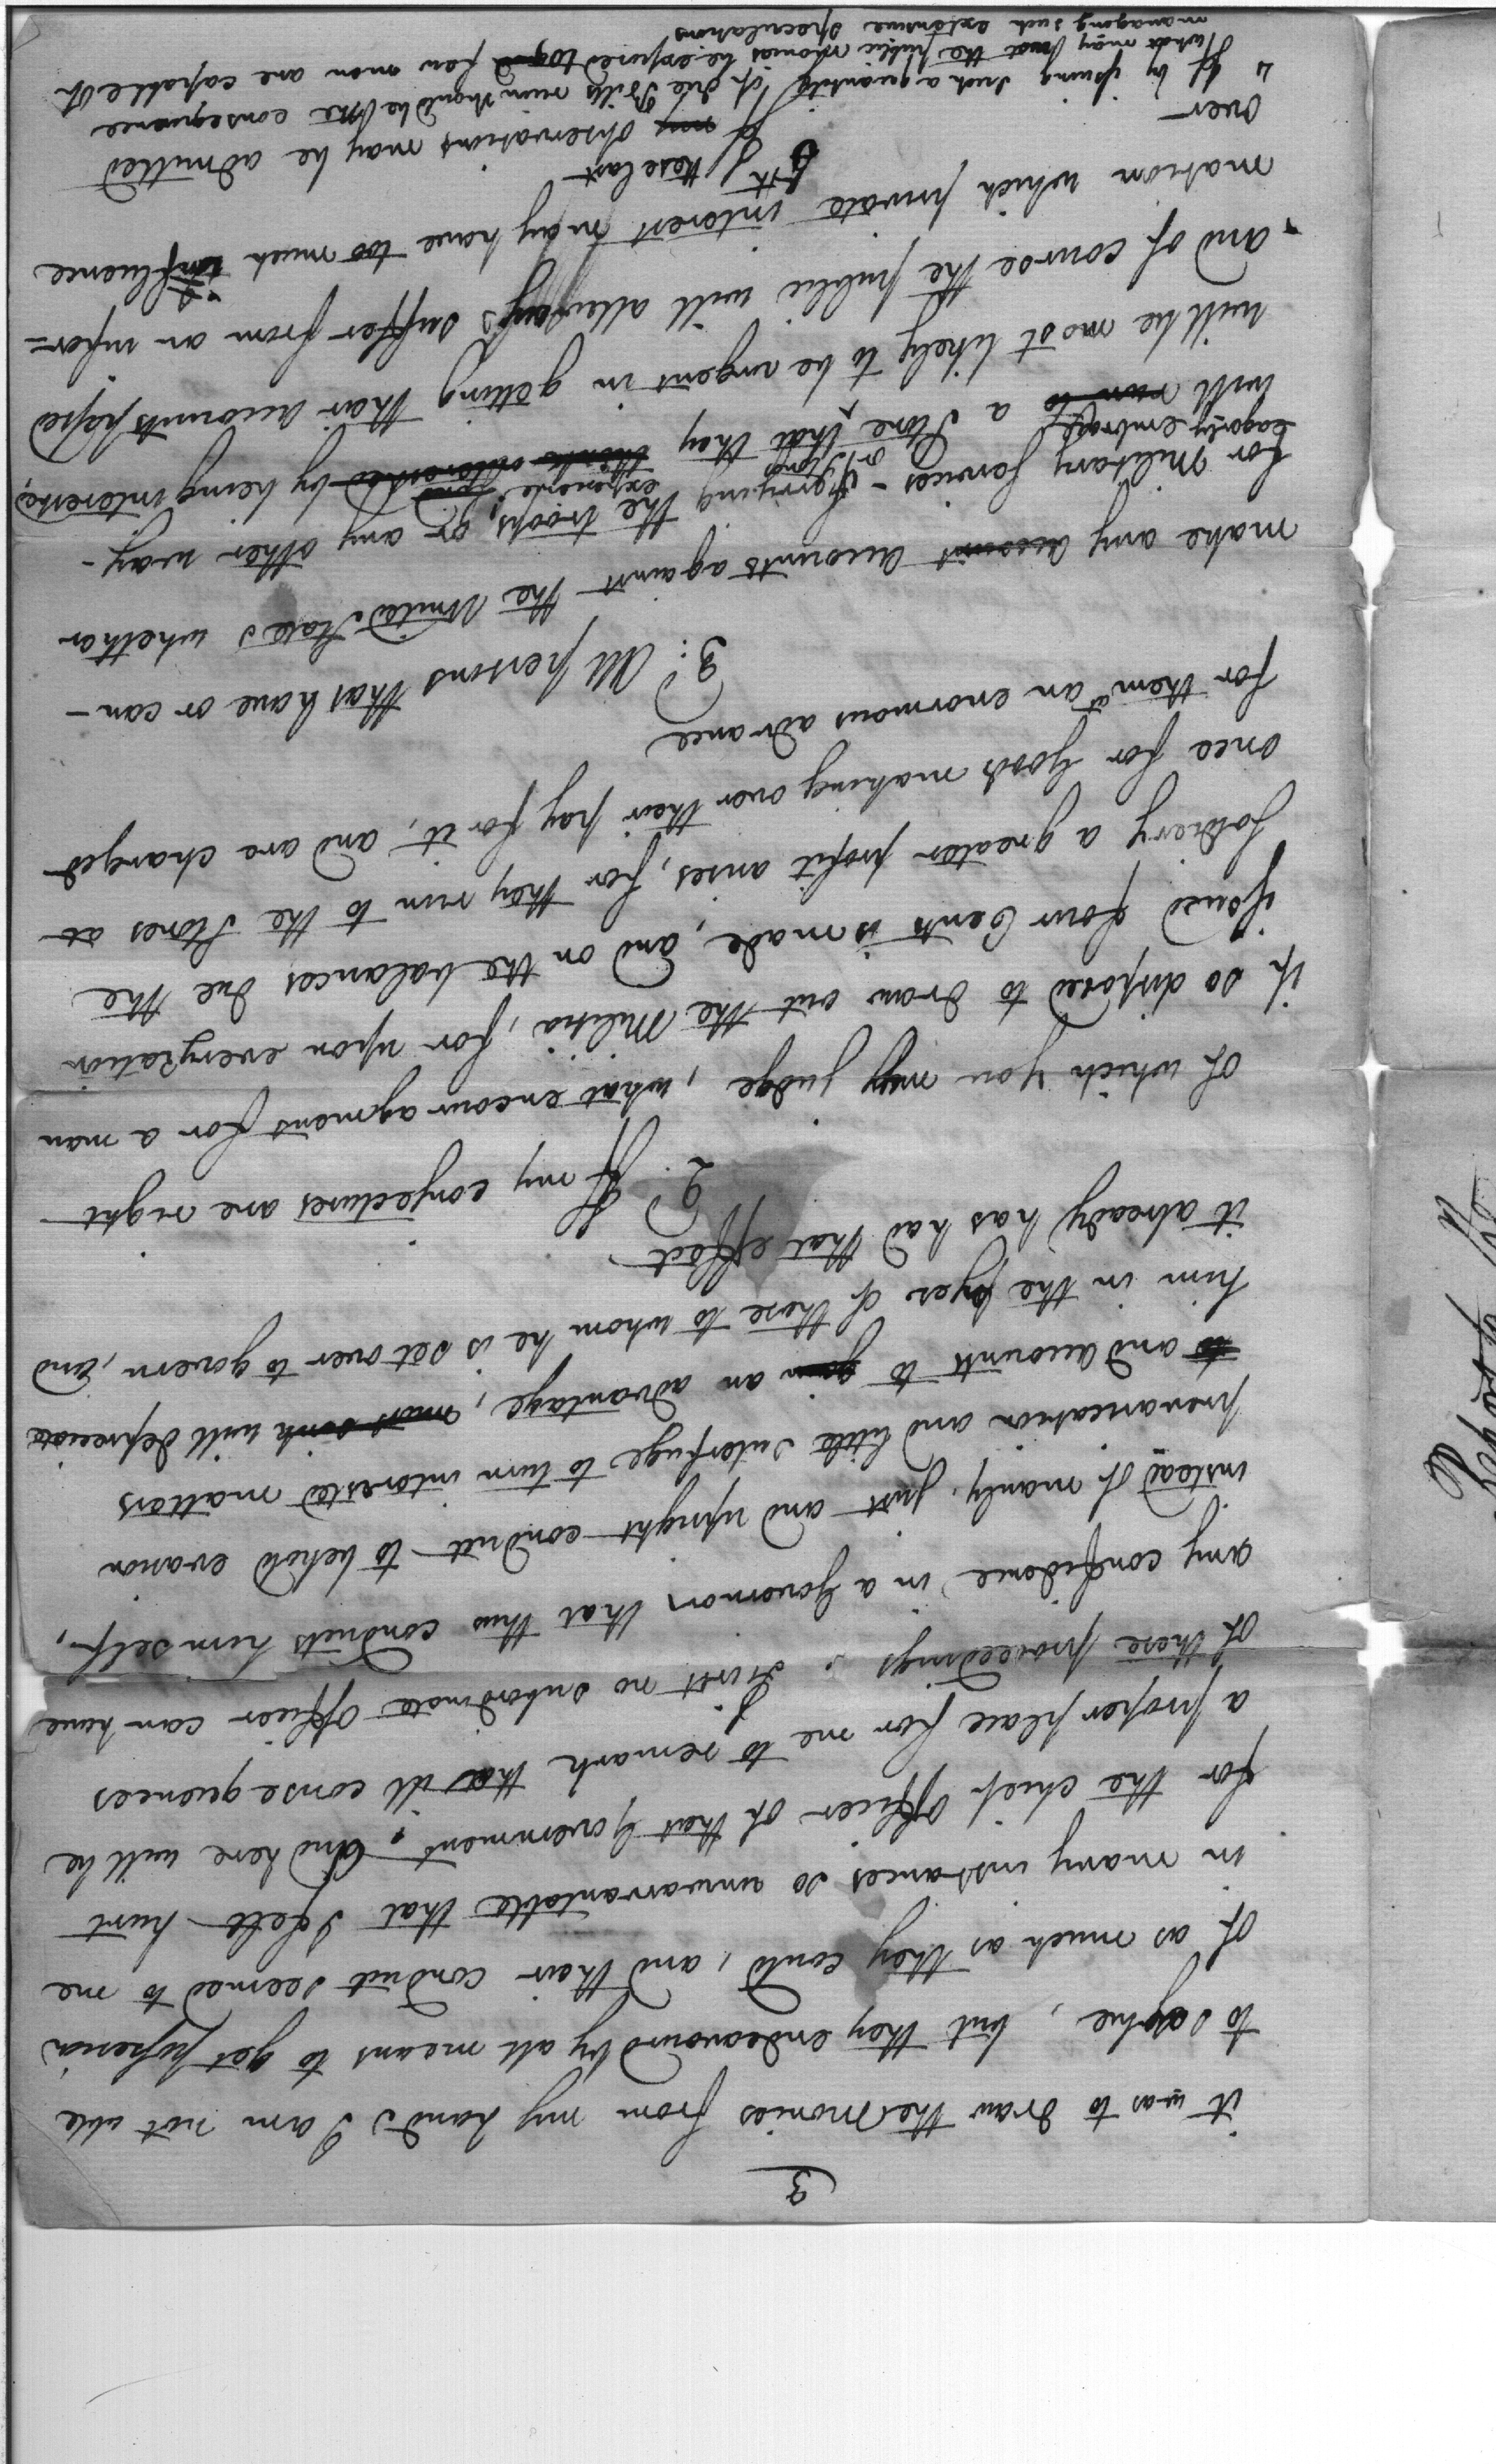 3
it was to draw the Monies from my hands I am not able
to say he, but they endeavourd by all means to get possession
of as much as they could, and their conduct seemed to me
in many instances so unwarrantable that I felt hurt
for the chief Officer of that Government, And here will be
a proper place for me to remark the ill consequences
of these proceedings. First no subordinate Officer can have
any confidence in a Governor, that thus conducts himself,
instead of manly, just and upright conduct to behold evasion
prevarication and little subterfuge to turn interested matters
to and accounts to gain an advantage, must sink will depreciate
him in the Eyes of those to whom he is set over to govern, and
it already has had that effect
2 If my conjectures are right
of which you may judge, what encouragement for a man
if so disposed to draw out the Militia, for upon every ration
issued four Cents is made, and on the balances due the
soldiery a greater profit arises, for they run to the Stores at
once for Goods making over their pay for it, and are charged
for them at an enormous advance
3. All persons that have or can
make any account accounts against the United States whether
for Military Services - ferrying the troops, or any other way -
eagerly embrace or Song expence
will run to a Store, that they think interested by being interested,
will be most likely to be urgent in getting their accounts passed
and of course the public will allways suffer from an infor=
mation which private interest may have too much influence
over
5th If these last my observations may be admitted
4 If by issuing such a quantity of due Bills ruin should be the consequence
to what may not the public monies be exposed to few men are capable of
managing such extensive speculations